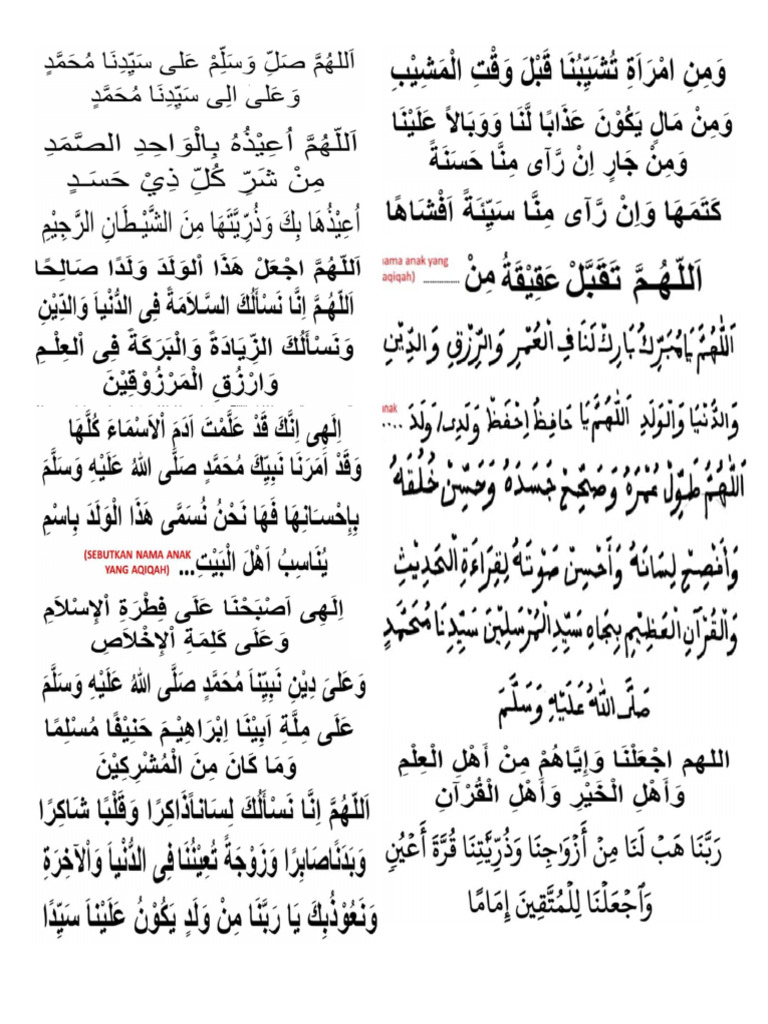 اَللهُمَّ صَلِّ وَسَلِّمْ عَلى سَيِّدِنَا مُحَمَّدٍ
وَعَلىٰ الِى سَيِّدِنَا مُحَمَّدٍ
اَللّٰهُمَّ اُعِيْذُهُ بِالْوَاحِدِ الصَّمَدِ
مِنْ شَرِّ كُلِّ ذِيْ حَسَدٍ
أُعِيْذُهَا بِكَ وَذُرِّيَّتَهَا مِنَ الشَّيْطَانِ الرَّجِيْمِ
اَللّٰهُمَّ اجْعَلْ هَذَا الْوَلَدَ وَلَدًا صَالِحًا
اَللّٰهُمَّ اِنَّا نَسْأَلُكَ السَّلاَمَةً فِى الدُّنْياَ وَالدِّيْنِ
وَنَسْأَلُكَ الزِّيَادَةً وَالْبَرَكَةً فِى الْعِلْمِ
وَارْزُقِ الْمَرْزُوْقِيْنَ
اِلَهِى اِنَّكَ قَدْ عَلَّمْتَ اَدَمَ الْاَسْمَاءَ كُلَّهَا
وَقَدْ اَمَرَنَا نَبِيِّكَ مُحَمَّدٍ صَلَّى اللهُ عَلَيْهِ وَسَلَّمَ
بِإِحْسَانِهَا فَهَا نَحْنُ نُسَمَّى هَذَا الْوَلَدَ بِاسْمِ
يُنَاسِبُ اَهْلَ الْبَيْتِ... (SEBUTKAN NAMA ANAK
YANG AQIQAH)
اِلَهِى اَصْبَحْنَا عَلَى فِطْرَةِ الْإِسْلاَمِ
وَعَلَى كَلِمَةِ الْإِخْلاَصِ
وَعَلىَ دِيْنِ نَبِيِّناَ مُحَمَّدٍ صَلَّى اللهُ عَلَيْهِ وَسَلَّمَ
عَلَى مِلَّةِ اَبِيْنَا اِبْرَاهِيْمَ حَنِيْفًا مُسْلِمًا
وَمَا كَانَ مِنَ الْمُشْرِكِيْنَ
اَللّٰهُمَّ اِنَّا نَسْأَلُكَ لِسَاناًذَاكِرًا وَقَلْبًا شَاكِرًا
وَبَدَنًاصَابِرًا وَزَوْجَةً تُعِيْنُنَا فِى الدُّنْياَ وَالْاَخِرَةِ
وَنَعُوْذُبِكَ يَا رَبَّنَا مِنْ وَلَدٍ يَكُوْنُ عَلَيْناَ سَيِّدًا
وَمِنِ امْرَأَةِ تُشَيِّبُنَا قَبْلَ وَقْتِ الْمَشِيْبِ
وَمِنْ مَالٍ يَكُوْنَ عَذَابًا لَّنَا وَوَبَالاً عَلَيْنَا
وَمِنْ جَارٍ اِنْ رَّآى مِنَّا حَسَنَةً
كَتَمَهَا وَاِنْ رَّآى مِنَّا سَيِّئَةً اَفْشَاهَا
اَللّٰهُمَّ تَقَبَّلْ عَقِيْقَةُ مِنْ .................. nama anak yang
aqiqah)
اَللّٰهُمَّ يَامُبَرِّكُ بَارِكْ لَنَا فِى الْعُمْرِ وَالرِّزْقِ وَالدِّيْنِ
وَالدُّنْيَا وَالْوَلَدِ اَللّٰهُمَّ يَا حَافِظُ اِحْفَظْ وَلَدِى/وَلَدَ .... anak
اَللّٰهُمَّ طَوِّلْ عُمْرَهُ وَصَحِّحْ جَسَدَهُ وَحَسِّنْ خُلُقَهُ
وَأَفْصِحْ لِسَانَهُ وَأَحْسِنْ صَوْتَهُ لِقِرَاءَةِ الْحَدِيْثِ
وَالْقُرْآنِ الْعَظِيْمِ بِجَاهِ سَيِّدِ الْمُرْسَلِيْنَ سَيِّدِنَا مُحَمَّدٍ
صَلَّى اللهُ عَلَيْهِ وَسَلَّمَ
اللهم اجْعَلْنَا وَإِيَّاهُمْ مِنْ أَهْلِ الْعِلْمِ
وَأَهْلِ الْخَيْرِ وَأَهْلِ الْقُرْآنِ
رَبَّنَا هَبْ لَنَا مِنْ أَزْوَٰجِنَا وَذُرِّيَّٰتِنَا قُرَّةَ أَعْيُنٍ
وَٱجْعَلْنَا لِلْمُتَّقِينَ إِمَامًا